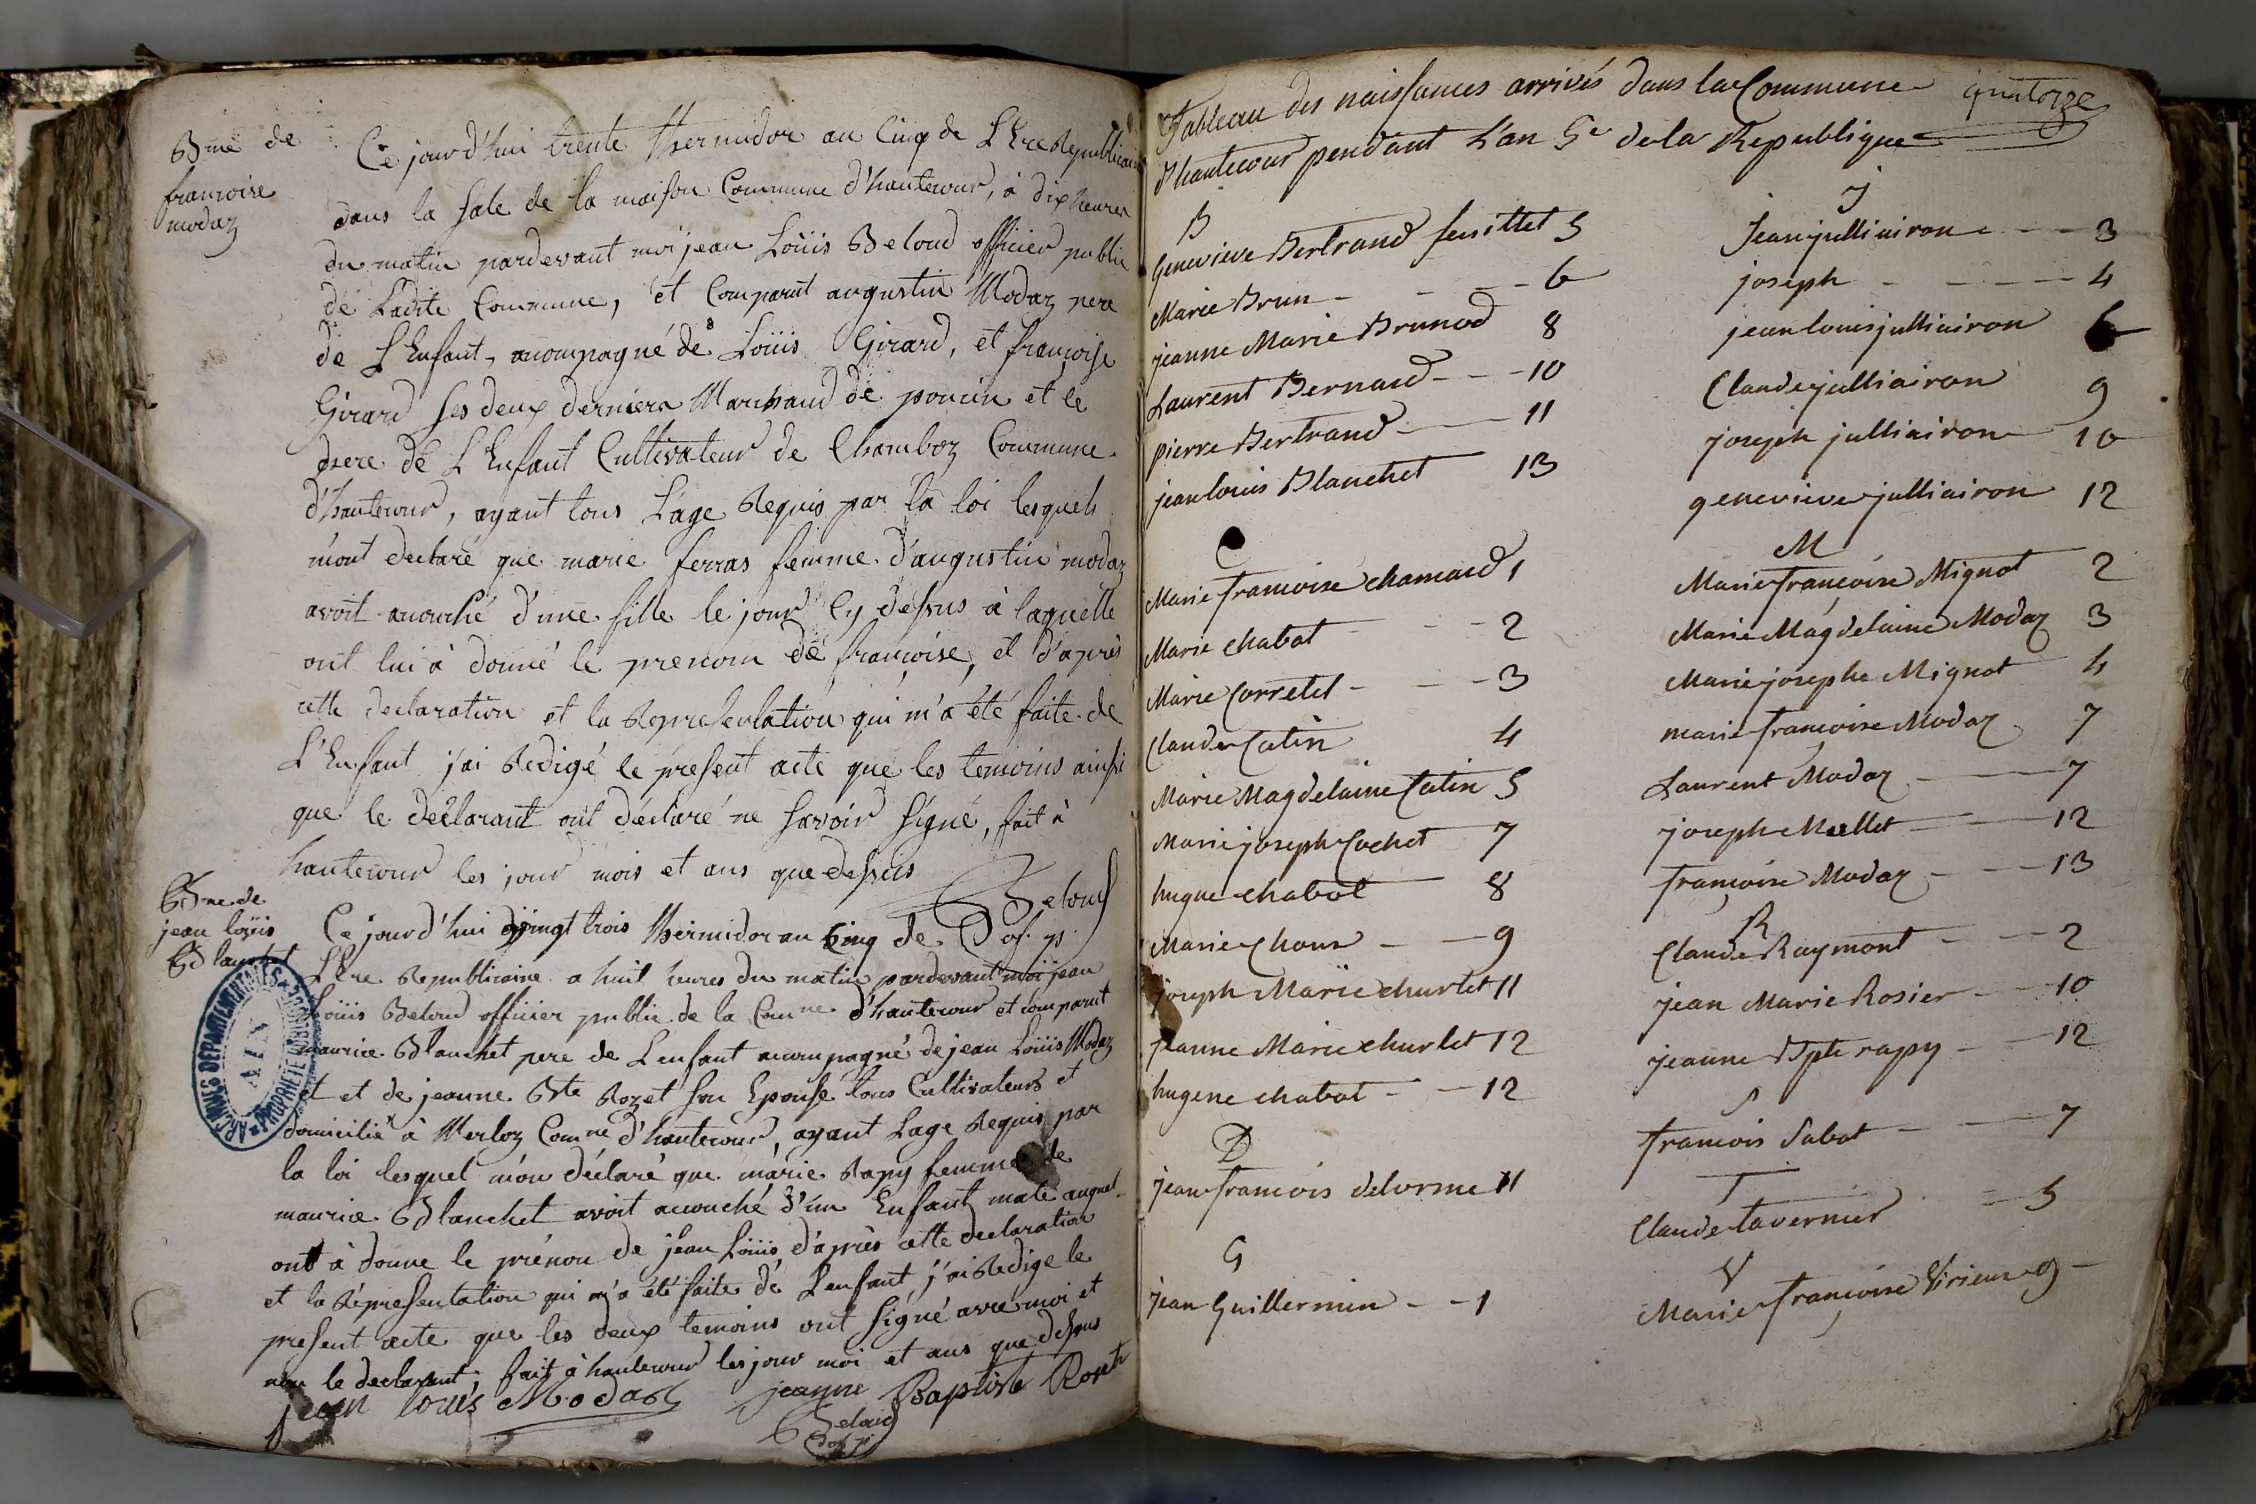 de
francoise
modaz
Ce jour d'hui trente thermidor an Cinq de L'Ere Republicaine
dans la sale de la maison Commune d'hautecour, à dix heures
du matin pardevant moi jean Loüis Beloud officier public
de Ladite Commune, et Comparut augustin Modaz pere
de L'Enfant, acompagné de Loüis Girard, et françoise
Girard ses deux derniers Marchand de poncin et le
pere de L'Enfant Cultivateur de Chamboz Commune
d'hautecour, ayant tous L'age Requis par la loi lesquels
m'ont declaré que marie ferras femme d'augustin modaz
avoit acouché d'une fille le jour Cy dessus à laquelle
ont lui à donné le prenom de françoise, et d'après
cette declaration et la Representation qui m'a été faite de
L'Enfant j'ai Redigé le present acte que les temoins ainsi
que le declarant ont déclaré ne savoir signé, fait à
hautecour les jour mois et ans que dessus
Beloud
of. p.
de
jean loüis
Blanchet
Ce jour d'hui vingt trois thermidor an Cinq de
L'Ere Republicaine a huit heures du matin pardevant moi jean
Loüis Beloud officier public de la Comne d'hautecour et comparut
maurice Blanchet pere de Lenfant acompagné de jean Loüis Modaz
et et de jeanne Bte Rozet son Epouse tous Cultivateurs et
domicilié à Merloz Comne d'hautecour, ayant Lage Requis par
la loi lesquel m'on déclaré que marie Rapy femme de
maurice Blanchet avoit acouché d'un Enfant male auquel
ont à donne le prénon de jean Loüis d'après cette declaration
et la Répresentation qui m'a été faite de Lenfant j'ai Redige le
present acte que les deux temoins ont signé avec moi et
non le declarant, fait à hautecour les jour moi et ans que dessus
jean louis Modas jeanne Baptiste Roset
Beloud
of. p.
ARCHIVES DEPARTEMENTALES
AIN
PROPRIETE PUBLIQUE
quatorze
Tableau des naissances arrivés dans la Commune
d'hautecour pendant L'an 5e de la Republique
B
Genevieve Bertrand feuillet 5
Marie Brun - - - 6
jeanne Marie Brunod 8
Laurent Bernard - - 10
pierre Bertrand - 11
jean louis Blanchet 13
C
Marie francoise chanard 1
Marie chabot - - - 2
Marie Corretel - - - 3
Claude Catin 4
Marie Magdelaine Catin 5
Marie joseph Cochet 7
hugue chabot 8
Marie Chour - - 9
joseph Marie churlet 11
jeanne Marie churlet 12
hugene chabot - - 12
D
jean francois delorme 11
G
jean Guillermin - - 1
J
Jean julliairon - - 3
joseph - - - - 4
jean louis julliairon 6
Claude julliairon 9
joseph julliairon 10
genevieve julliairon 12
M
Marie françoise Mignot 2
Marie Magdelaine Modaz 3
Marie josephe Mignot 4
marie françoise Modaz 7
Laurent Modaz - 7
joseph Mallet - 12
françoise Modaz - - 13
R
Claude Raymont - - 2
jean Marie Rosier - - 10
jeanne Bpte rapy - - 12
S
francois Sabot - - 7
T
Claude tavernier - 5
V
Marie françoise Virieux 9 -